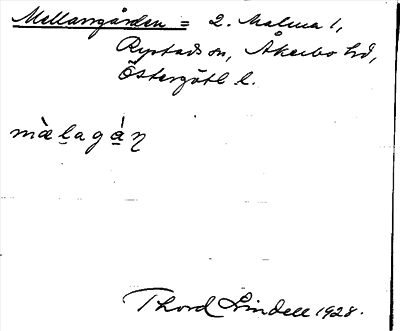 Mellangården = 2. Malma 1,
Rystads sn, Åkerbo hd,
Östergötl l.
mæ̀l̠agá̠ɳ
Thord Lindell 1928.